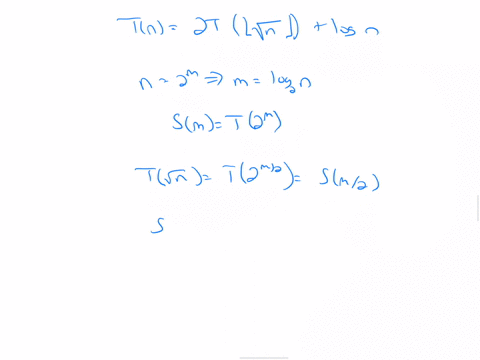 T(n) = 2T(⌊√n⌋) + log n
n = 2^m ⇒ m = log₂ n
S(m) = T(2^m)
T(√n) = T(2^{m/2}) = S(m/2)
S